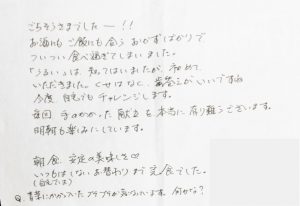 ごちそうさまでしたー!!
お酒にもご飯にも合うおかずばかりで
ついつい食べ過ぎてしまいました。
「うるい」は、知ってはいましたが、初めて
いただきました。くせはなく、歯答えがいいですね
今度自宅でもチャレンジします。
毎回手のかかった献立を本当に有り難うございます。
明朝も楽しみにしています。
朝食、安定の美味しさ♡
いつもはしないお替わりまで完食でした。
(自宅では)
Q.青菜にかかっていたプラプラが気になっています。何かな?